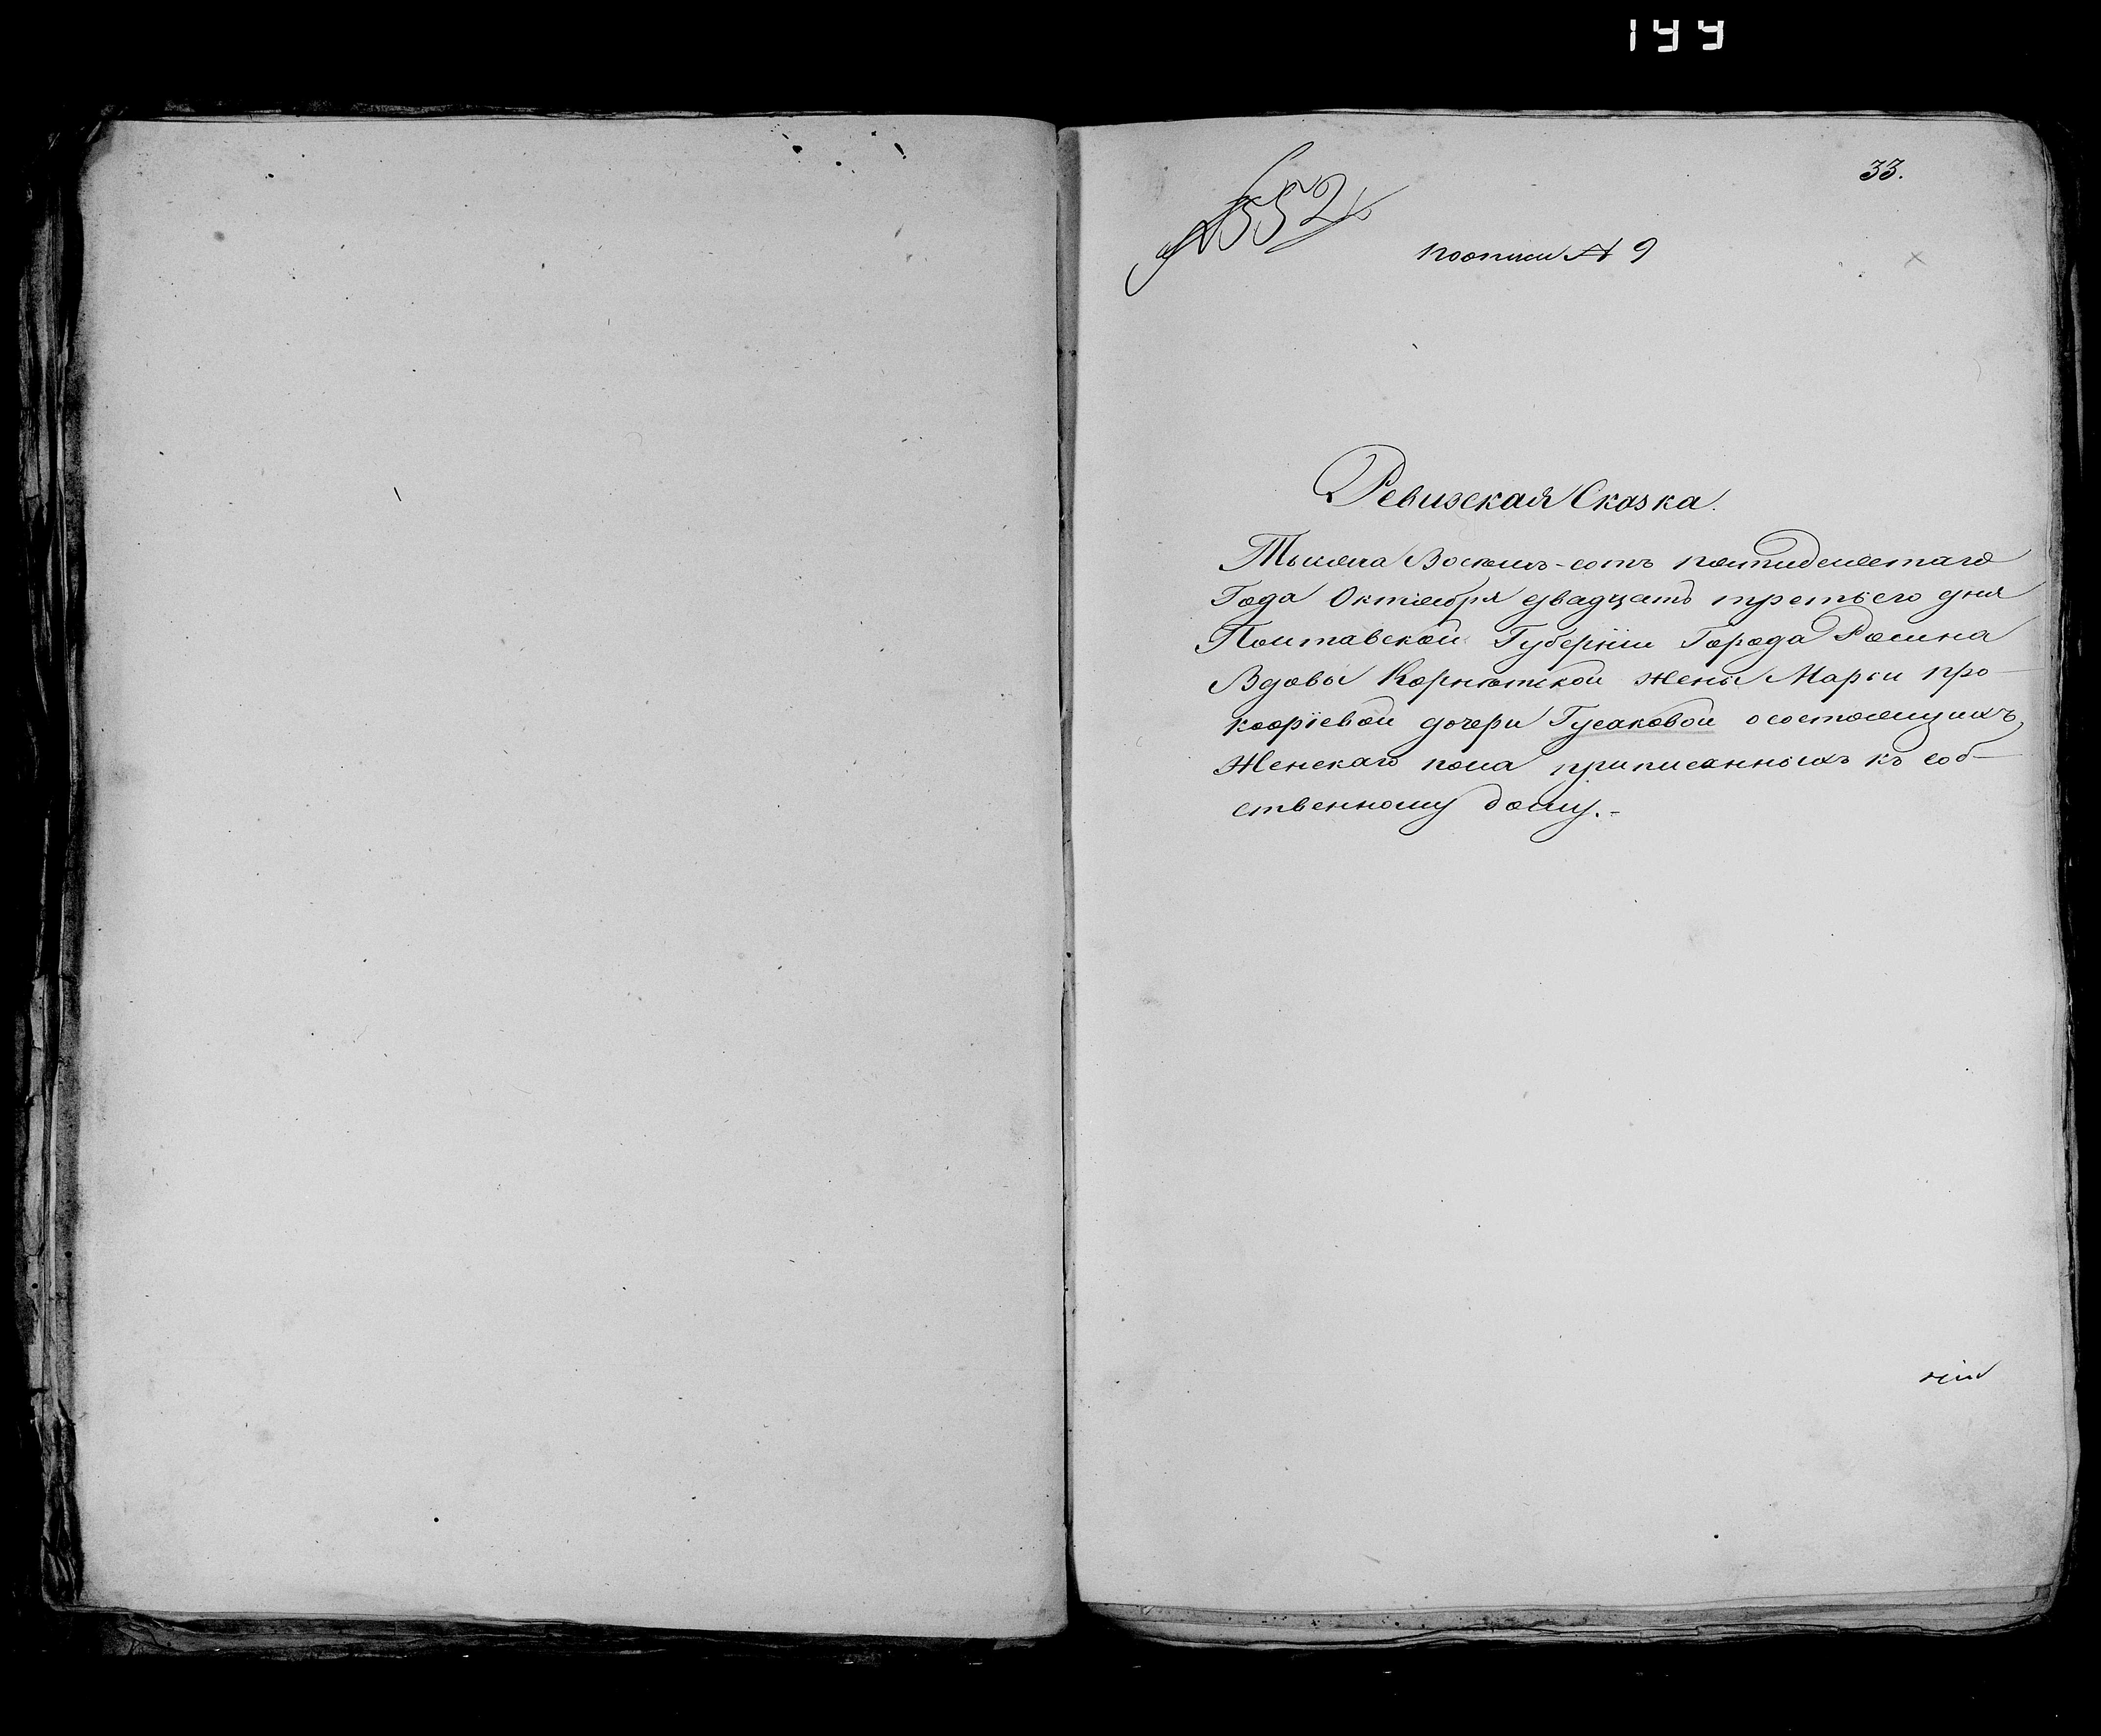 144
33.
552
по описи № 9
Ревизская Сказка.
Тысяча Восемь-сотъ пятидесятаго
Года Октября двадцать третьего дня
Полтавской Губерніи Города Ромна
Вдовы Корнетской жены Марьи про-
кофіевой дочери Гусаковой о состоящихъ
Женскаго пола приписанныхъ къ соб-
ственному дому.-